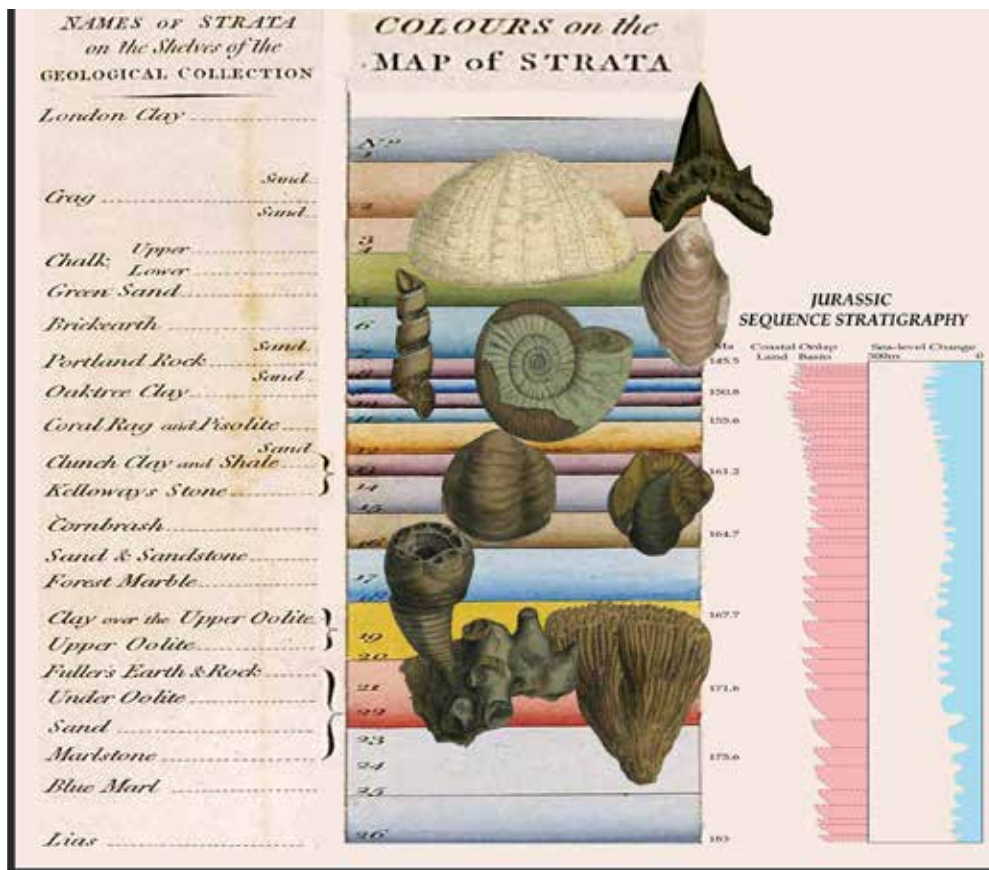 NAMES OF STRATA
on the Shelves of the
GEOLOGICAL COLLECTION
London Clay
Sand
Crag
Sand
Chalk Upper
Lower
Green Sand
Brickearth
Sand
Portland Rock
Sand
Oaktree Clay
Coral Rag and Pisolite
Sand
Clunch Clay and Shale
Kelloways Stone
Cornbrash
Sand & Sandstone
Forest Marble
Clay over the Upper Oolite
Upper Oolite
Fullers Earth & Rock
Under Oolite
Sand
Marlstone
Blue Marl
Lias
COLOURS on the
MAP of STRATA
No
1
2
3
4
5
6
7
8
11
12
13
14
15
16
17
18
19
20
21
22
23
24
25
26
JURASSIC
SEQUENCE STRATIGRAPHY
Ma Coastal Onlap Sea-level Change
Land Basin 300m 0
145.5
150.8
155.6
161.2
164.7
167.7
171.6
175.6
183